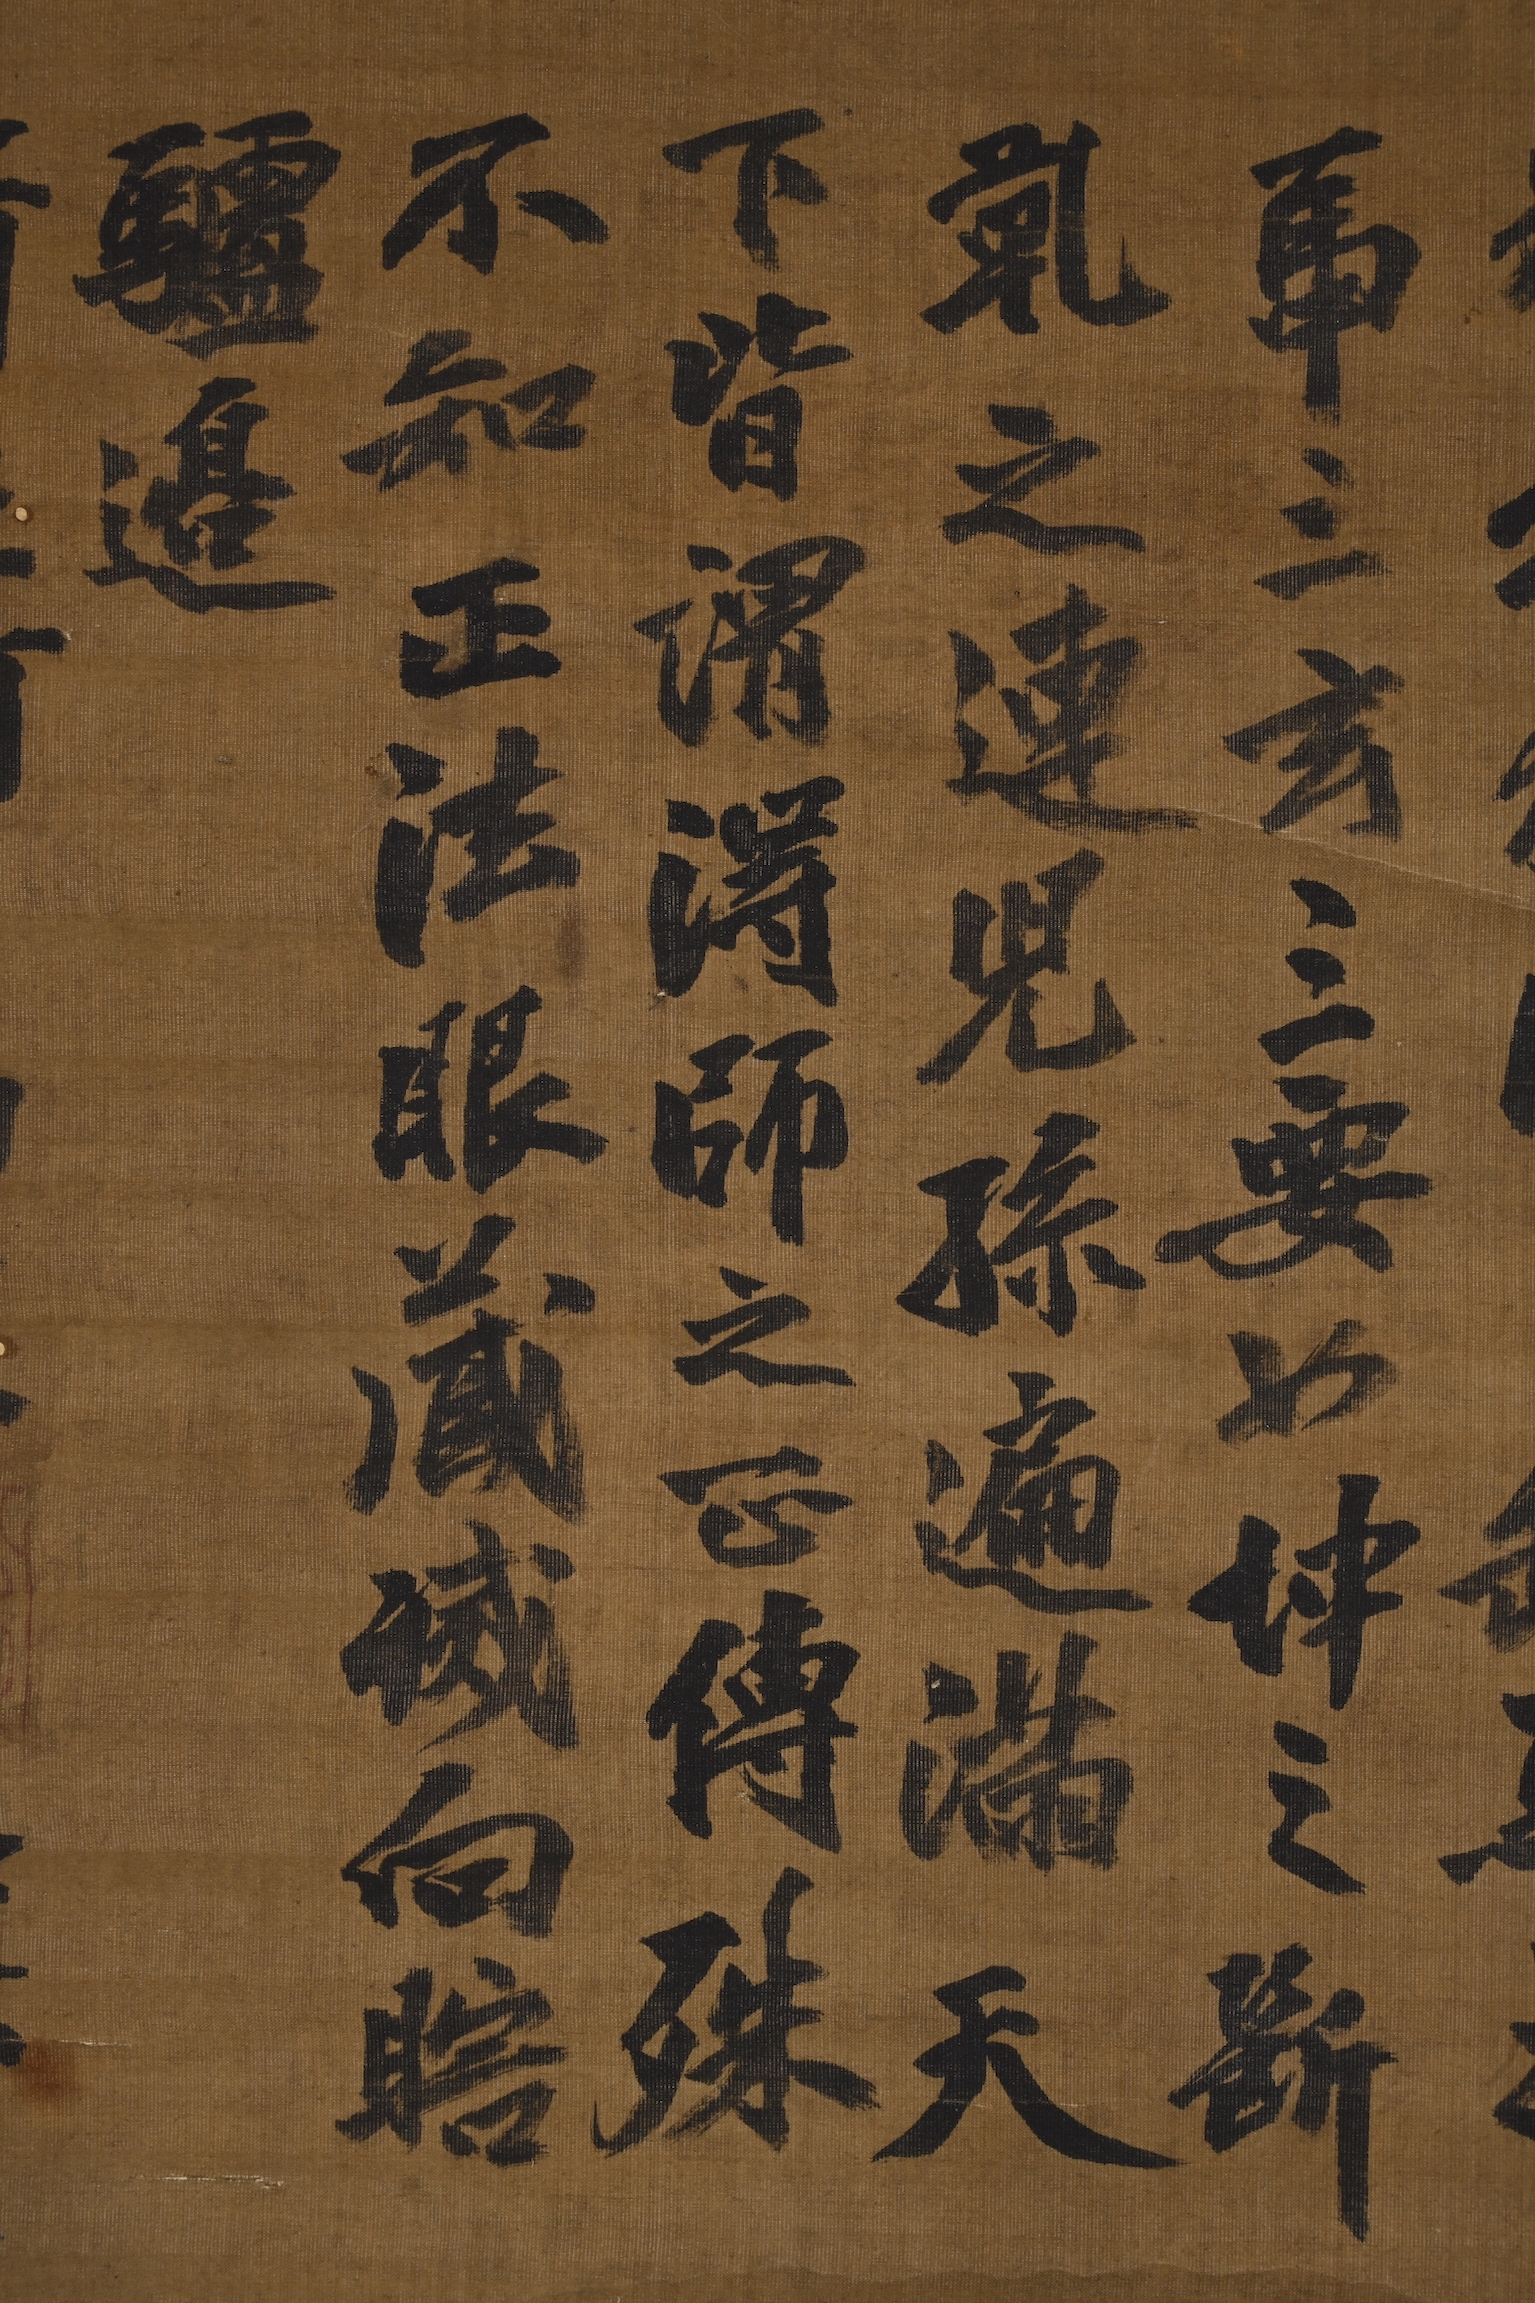 三玄三要如坤之斷
乾之連兒孫遍滿天
下皆謂得師之正傳殊
不知正法眼藏滅向瞎
驢邊